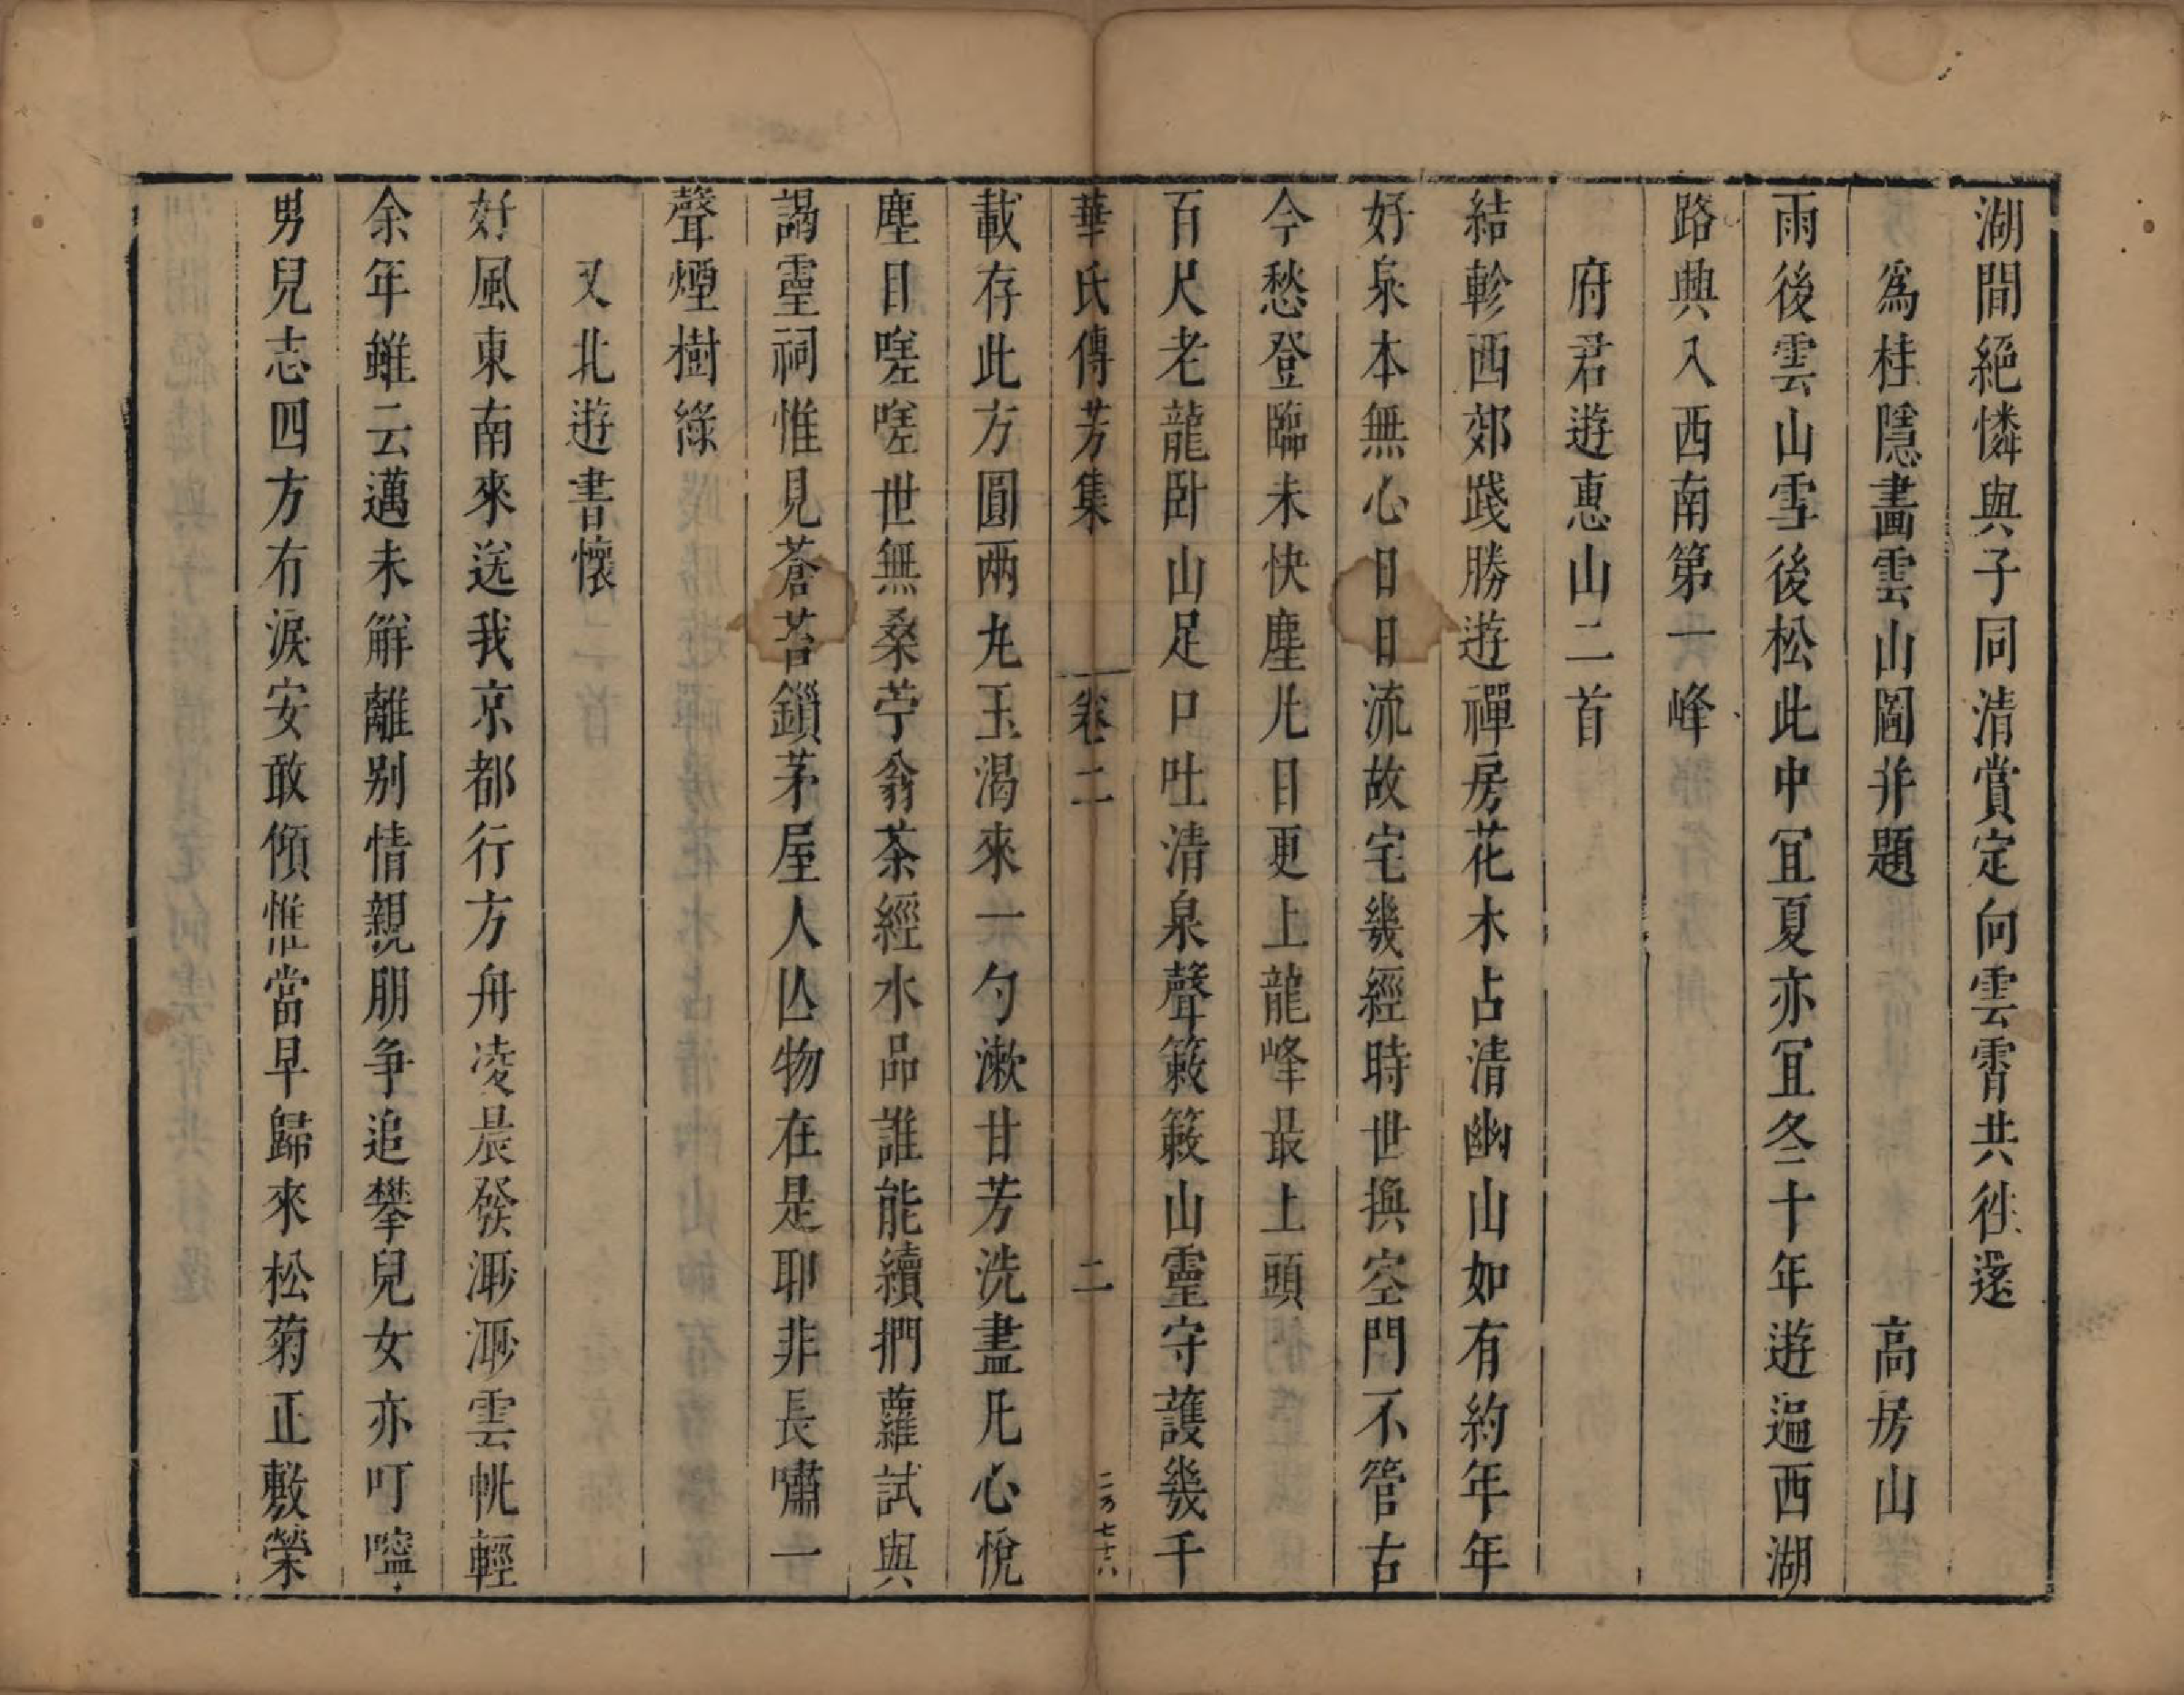 湖間絕憐與子同清賞定向雲霄共往還
爲桂隱畵雲山圖并題　高房山
雨後雲山雪後松此中冝夏亦冝冬十年遊遍西湖
路興入西南第一峰
府君遊惠山二首
結軫西郊踐勝遊禪房花木占清幽山如有約年年
好泉本無心日日流故宅幾經時世換空門不管古
今愁登臨未快塵凡目更上龍峰最上頭
百尺老龍卧山足口吐清泉聲簌簌山靈守護幾千
華氏傳芳集　卷二　二　二万七十六
載存此方圓兩九玉渴來一勺漱甘芳洗盡凡心悅
塵目嗟嗟世無桑苧翁茶經水品誰能續捫蘿試與
謁靈祠惟見蒼苔鎖茅屋人亾物在是耶非長嘯一
聲煙樹綠
又北遊書懷
好風東南來送我京都行方舟凌晨發渺渺雲帆輕
余年雖云邁未觧離别情親朋争追攀兒女亦叮嚀
男兒志四方有淚安敢傾惟當早歸來松菊正敷榮